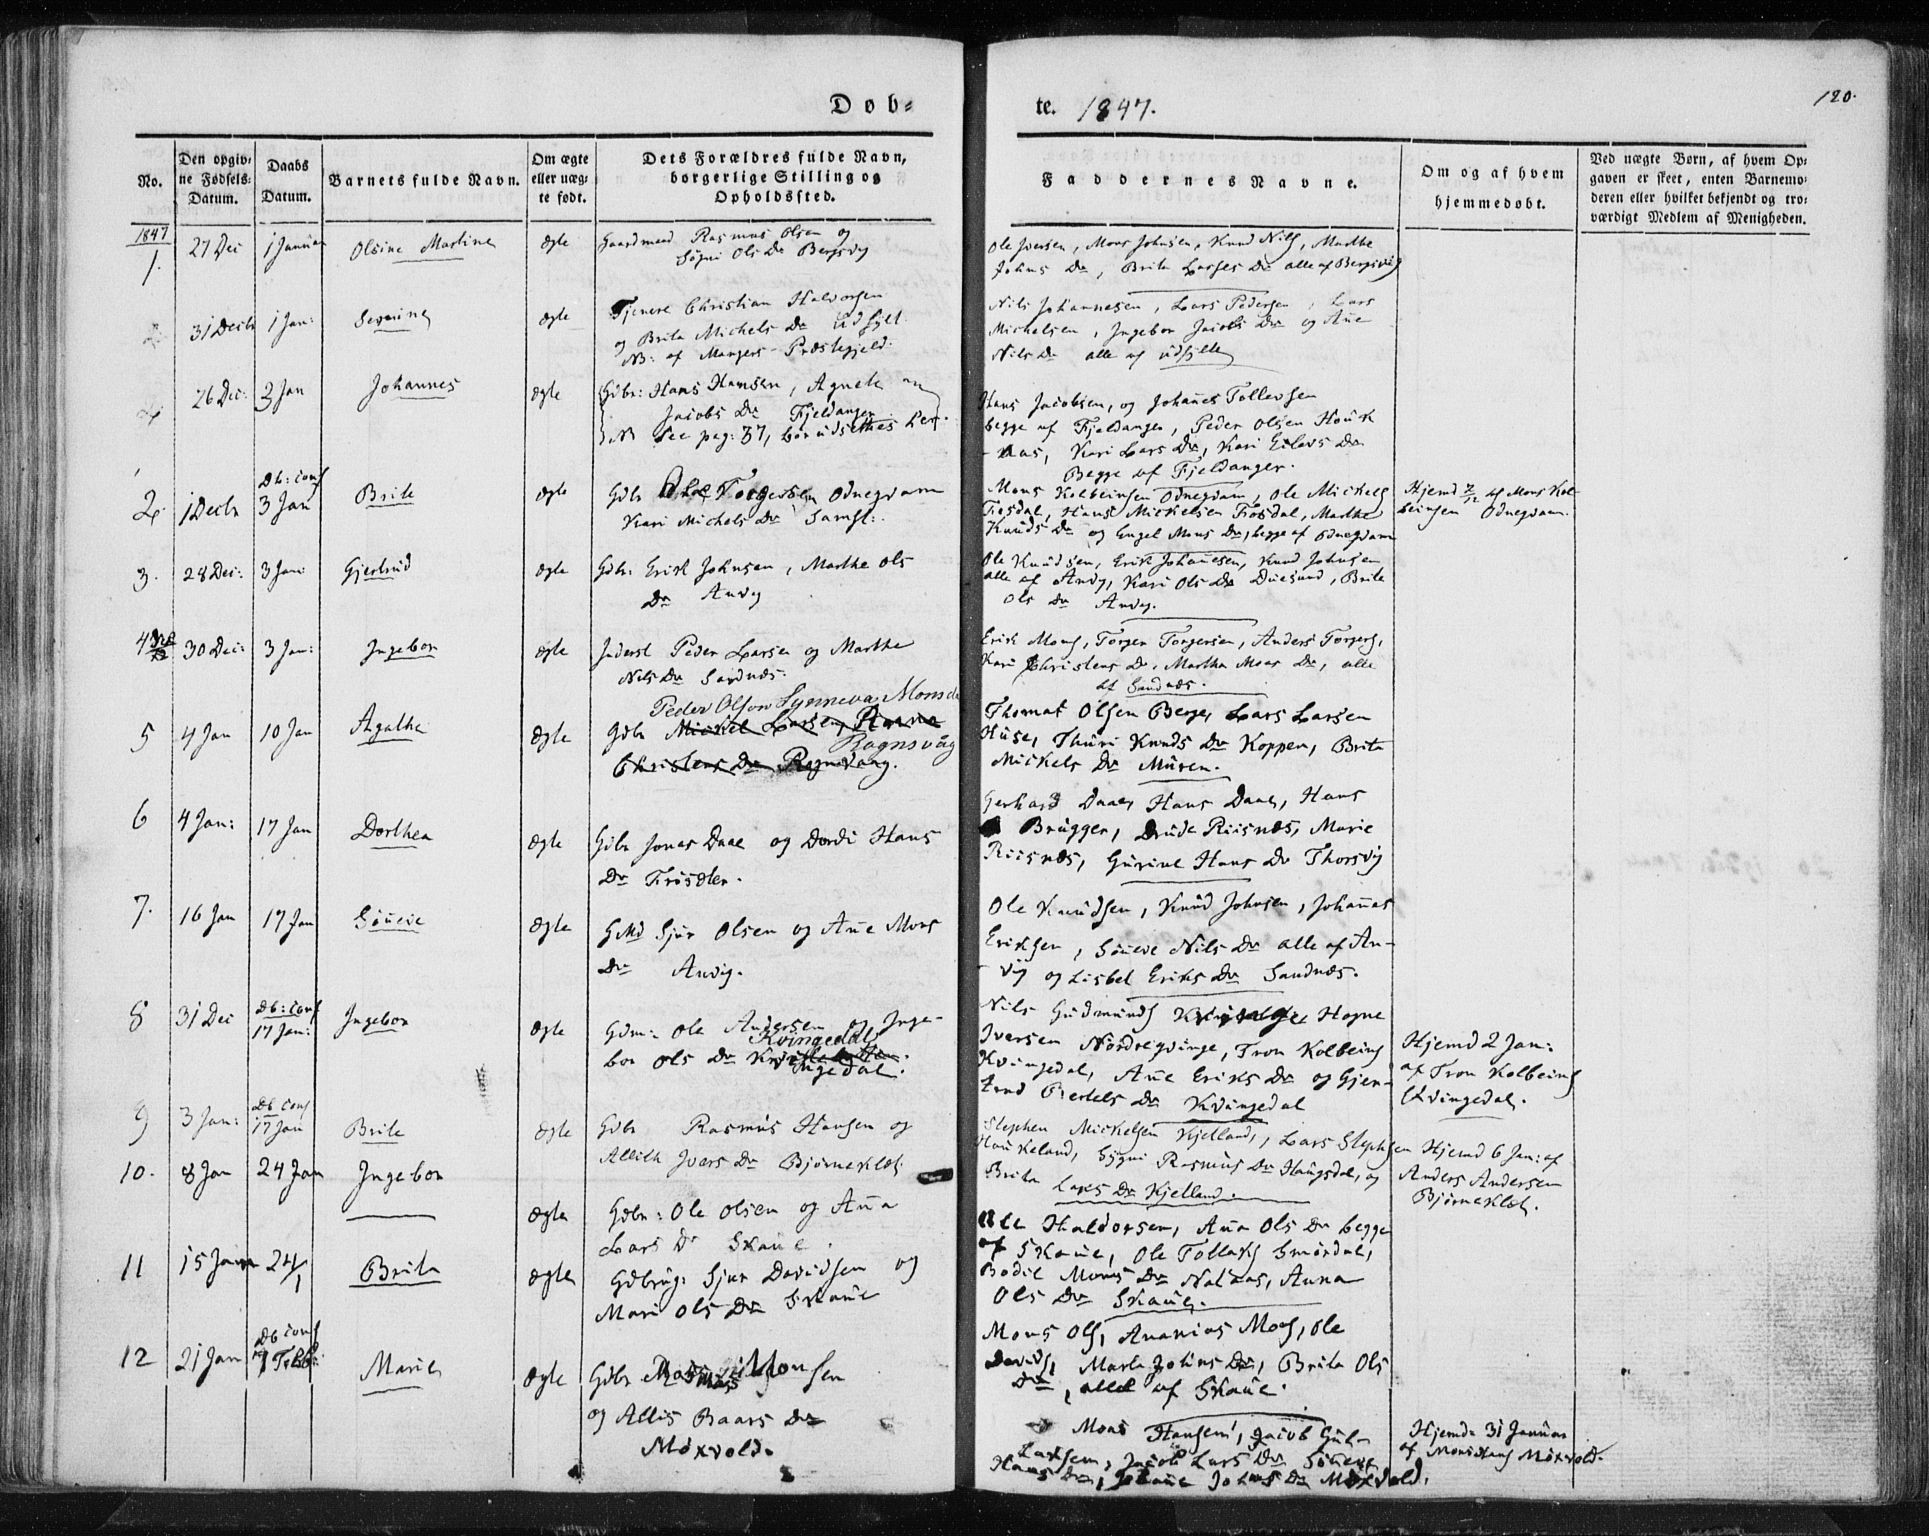 Døb=
te. 1847.
120.
No.
Den opgiv=
ne Fødsels=
Datum.
Daabs
Datum.
Barnets fulde Navn.
Om ægte
eller uæg=
te født.
Dets Forældres fulde Navn,
borgerlige Stilling og
Opholdssted.
Faddernes Navne.
Om og af hvem
hjemmedøbt.
Ved uægte Børn, af hvem Op=
gaven er skeet, enten Barnemo=
deren eller hvilket bekjendt og tro=
værdigt Medlem af Menigheden.
1847
1. 27 Dec 1 Januar Olsine Martine ægte Gaardmand Rasmus Olsen og
Ols Da Bergsvig
Ole Iversen, Mons Johnsen, Knud Nils, Marthe
Johns Da, Brita Da alle af Bergsvig
31 Decbr 1 Jan: Severine ægte Tjenere Christian Halvorsen
og Brita Michels Da
NB: af Mangers Præstegjeld.
Nils Johannesen, Lars Pedersen, Lars
Michelsen, Ingebor Jacobs Da og Ane
Nils Da alle af
26 Dec: 3 Jan Johannes ægte Gdbr: Hans Hansen, Agnete
Jacobs Da Fjeldanger
NB See pag: 37,
Hans Jacobsen, og Johanes Tollevsen
begge af Fjeldanger, Peder Olsen
Kari Lars Da, Kari Da
Begge af Fjeldanger.
2. 1 Decbr Db: conf 3 Jan Brite ægte Gdbr Ole Odnegdam
Kari Michels Da Samst:.
Mons Kolbeinsen Odnegdam, Ole Mickels
Frøsdal, Hans Mickelsen Frøsdal, Marthe
Knuds Da og Engel Mons Da, begge af Odnegdam
Hjemd 7/12 af Mons Kol-
beinsen Odnegdam.
3. 28 Dec: 3 Jan Gjertrud ægte Gdbr: Erik Johnsen, Marthe Ols
Da Anvig
Ole Knudsen, Erik Johanesen, Knud Johnsen
alle af Anvig, Kari Ols Da Duesund, Brite
Ols Da Anvig.
4 30 Dec: 3 Jan: Ingebor ægte Inderst Peder Larsen og Marthe
Nils Da Sandnæs.
Erik Mons, Torger Torgersen, Anders Torgers,
Kari Christens Da, Martha Mons Da, alle
af Sandnæs.
5 4 Jan 10 Jan Agathe ægte Peder Olson Synneva Monsda
Gdbr Mickel Larsen,
Rognsvåg
Christens Da Rognsvaag.
Thomas Olsen Berge, Lars Larsen
Huse, Thuri Knuds Da Koppen, Brita
Mickels Da Muren.
6 4 Jan: 17 Jan Dorthea ægte Gdbr Jonas Daae og Dordi Hans
Da Frøsdlen.
Gerhard Daae, Hans Daae, Hans
Brügger, Drude Riisnæs, Marie
Riisnæs, Gurine Hans Da Thorsvig
7. 16 Jan 17 Jan Søneve ægte GMd Sjur Olsen og Ane Mons
Da Anvig.
Ole Knudsen, Knud Johnsen, Johanes
Eriksen, Søneve Nils Da alle af An-
vig og Lisbet Eriks Da Sandnæs.
8 31 Dec Db: conf 17 Jan: Ingebor ægte Gdm: Ole Andersen og Inge-
Kvingedal
bor Ols Da
Nils Gudmunds Hogne
Iversen Nordreqvinge, Tron Kolbeins
Kvingedal, Ane Eriks Da og Gjer-
trud Bertels Da Kvingedal
Hjemd 2 Jan:
af Tron Kolbeins
Kvingedal.
9 3 Jan: Db conf 17 Jan Brite ægte Gdbr Rasmus Hansen og
Allith Ivers Da Bjørneklet.
Stephen Mickelsen Kjelland, Lars Stephsen
Haukeland, Sygni Rasmus Da Haugsdal, og
Brita Lars Da Kjelland.
Hjemd 6 Jan: af
Anders Andersen
Bjørneklet.
10. 8 Jan 24 Jan Ingebor ægte Gdbr: Ole Olsen og Ana
Lars Da Skaue.
Ole Haldorsen, Ana Ols Da begge
af Skaue, Ole Tollaks Smørdal,
Bodil Mons Da Nataas, Anna
Ols Da Skaue.
11 15 Janr 24/1 Brita ægte Gdbrug: Sjur Davidsen og
Mari Ols Da Skaue
Mons Ols, Ananias Mons, Ole
Davids, Marta Johns Da, Brita Ols
Da, alle af Skaue.
12 21 Jan Db conf Febr: Marie ægte Gdbr Rasmus Monsen
og Allis Baars Da
Møxvold.
Mons Hansen, Jacob Gul-
Jacob Lars Da
Hans Da, Johane Johns Da Møxvold.
Hjemd 31 Januar
af Mons Hans Møxvold.